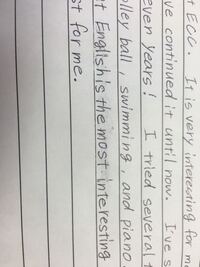 t ECC. It is very interesting for m
ve continued it until now. I've s
even years! I tried several t
lley ball, swimming, and piano.
t English is the most interesting
st for me.